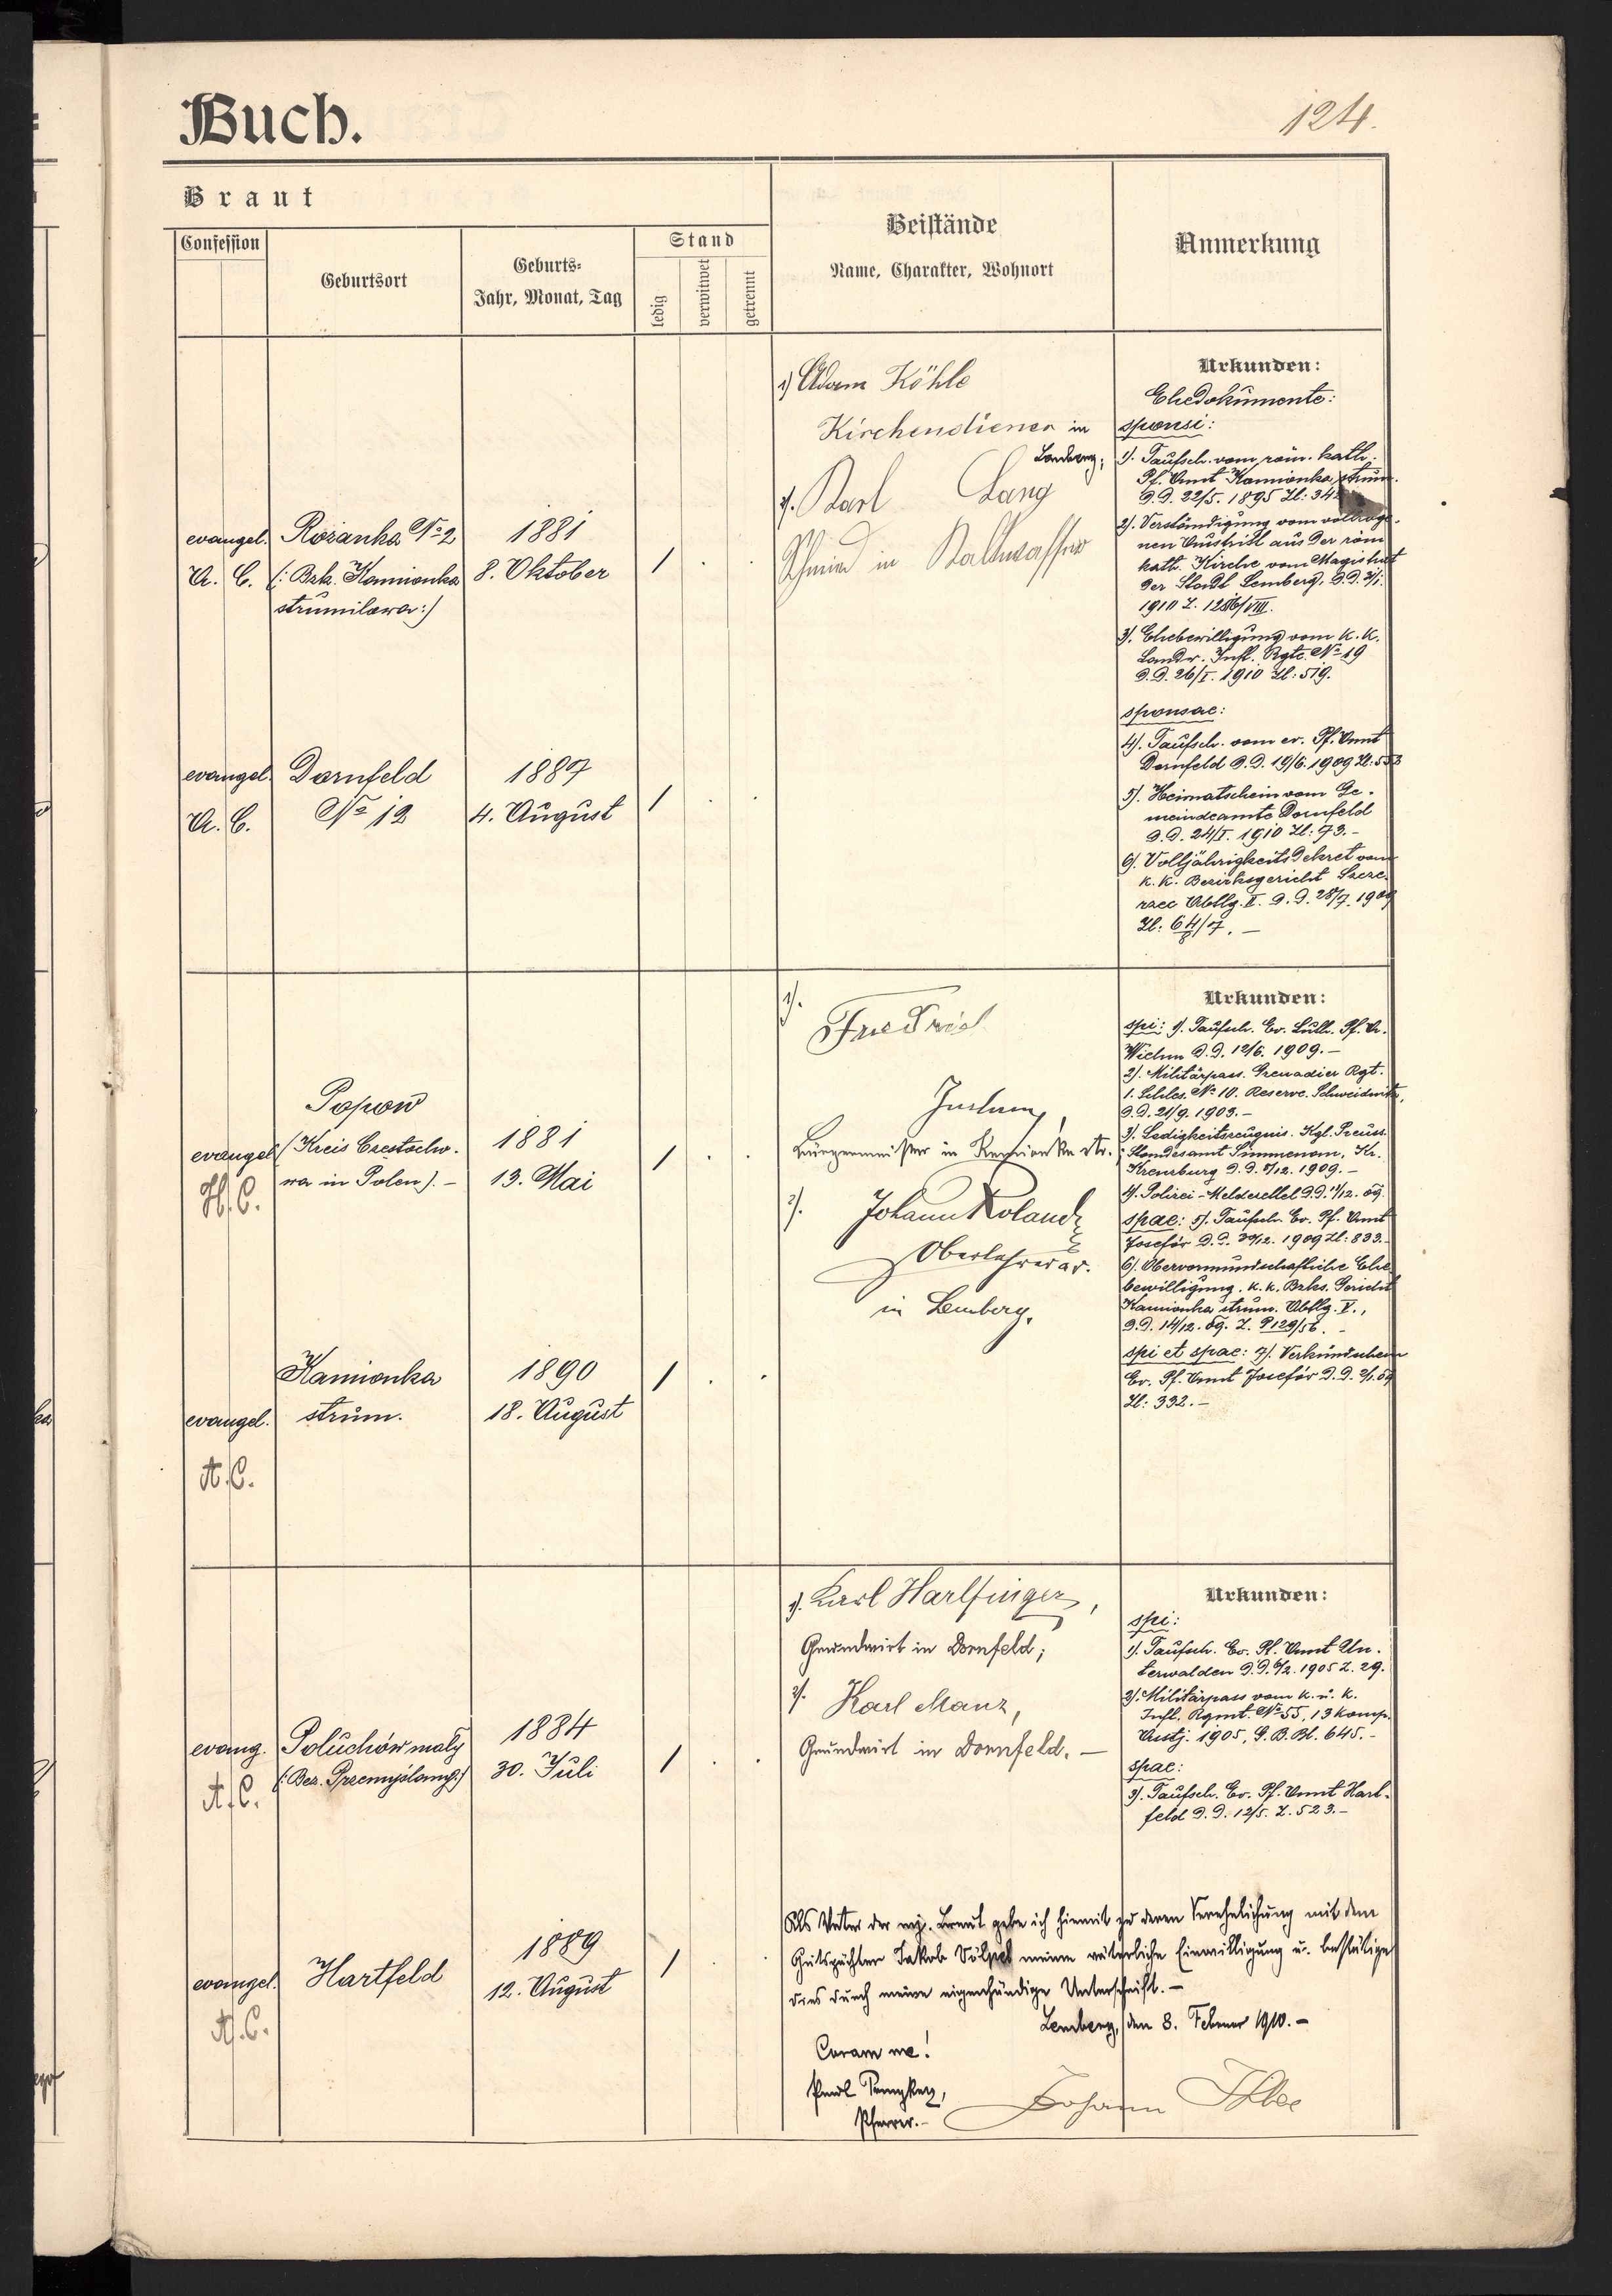 Buch.
124.
Braut
Confession
Geburtsort
Geburts-
Jahr, Monat, Tag
Stand
ledig
verwitwet
getrennt
Beistände
Name, Charakter, Wohnort
Anmerkung
evangel.
A. C.
Rożanka No 2
(: Bzk. Kamionka
strumilowa :)
1881
8. Oktober
1
evangel.
A. C.
Dornfeld
No 12
1887
4. August
1
1) Adam Köhle
Kirchendiener in
Lemberg;
2). Karl Lang
Schmied in Kaltwasser
Urkunden:
Ehedokumente:
sponsi:
1). Taufsch. vom röm. kath.
Pf. Amt Kamionka strum.
d.d. 22/5. 1895 Zl: 34
2). Verständigung vom vollzoge-
nen Austritt aus der röm
kath. Kirche vom Magistrat
der Stadt Lemberg, d.d.
1910 Z.
3). Ehebewilligung vom K. K.
Landw. Inft. Rgte. No 19
d.d. 26/I. 1910 Zl: 519.
sponsae:
4). Taufsch. vom ev. Pf. Amt
Dornfeld d.d. 19/6. 1909 Zl:
5). Heimatschein vom Ge-
meindeamte Dornfeld
d.d. 24/I. 1910 Zl: 73.-
6). Volljährigkeitsdekret vom
K. K. Bezirksgericht Szcze-
rzec Abtlg. II. d.d. 28/7. 1909
Zl:
evangel
H. C.
Popow
(Kreis Czestocho-
wa in Polen). -
1881
13. Mai
1
evangel.
A. C.
Kamionka
strum.
1890
18. August
1
1).
Friedrich
Bürgermeister in Kamionka str.;
2).
Johann Roland
Oberlehrer
in Lemberg.
Urkunden:
spi: 1). Taufsch. Ev. Luth. Pf. A.
Wielun d.d. 12/6. 1909. -
2). Militärpass. Grenadier Rgt.
1. Schles. No 10. Reserve. Schweidnitz,
d.d. 21/9. 1903. -
3). Ledigkeitszeugnis. Kgl. Preuss.
Standesamt Simmenau, Kr.
Kreuzburg d.d. 8/12. 1909. -
4). Polizei-Meldezettel d.d. 11/12. 09.
spae: 5). Taufsch. Ev. Pf. Amt
Josefów d.d. 30/12. 1909 Zl: 833.-
6). Obervormundschaftliche Ehe-
bewilligung. K. K. Bzks. Gericht
Kamionka strum. Abtlg. V.,
d.d. 14/12. 09. Z. P 129/56. -
spi et spae: 7). Verkündschein
Ev. Pf. Amt Josefów d.d.
Zl: 332. -
evang.
A. C.
Poluchów maly
(: Bez. Przemyślany :)
1884
30. Juli
1
evangel.
A. C.
Hartfeld
1889
12. August
1
1). Karl Harlfinger,
Grundwirt in Dornfeld;
2). Karl Manz,
Grundwirt in Dornfeld. -
Urkunden:
spi:
1). Taufsch. Ev. Pf. Amt Un-
terwalden d.d. 6/2. 1905 Z. 29.
2). Militärpass vom K. u. K.
Inft. Rgmt. No 55, 13 Komp.
Austj. 1905, G. B. Bl. 645. -
spae:
3). Taufsch. Ev. Pf. Amt Hart-
feld d.d. 12/5. Z. 523. -
Als Vater der mj. Braut gebe ich hiemit zu deren Verehelichung mit dem
Gutspächter Jakob Völpel meine väterliche Einwilligung u. bestätige
dies durch meine eigenhändige Unterschrift. -
Lemberg, den 8. Februar 1910. -
Coram me!
Pfarrer. -
Johann